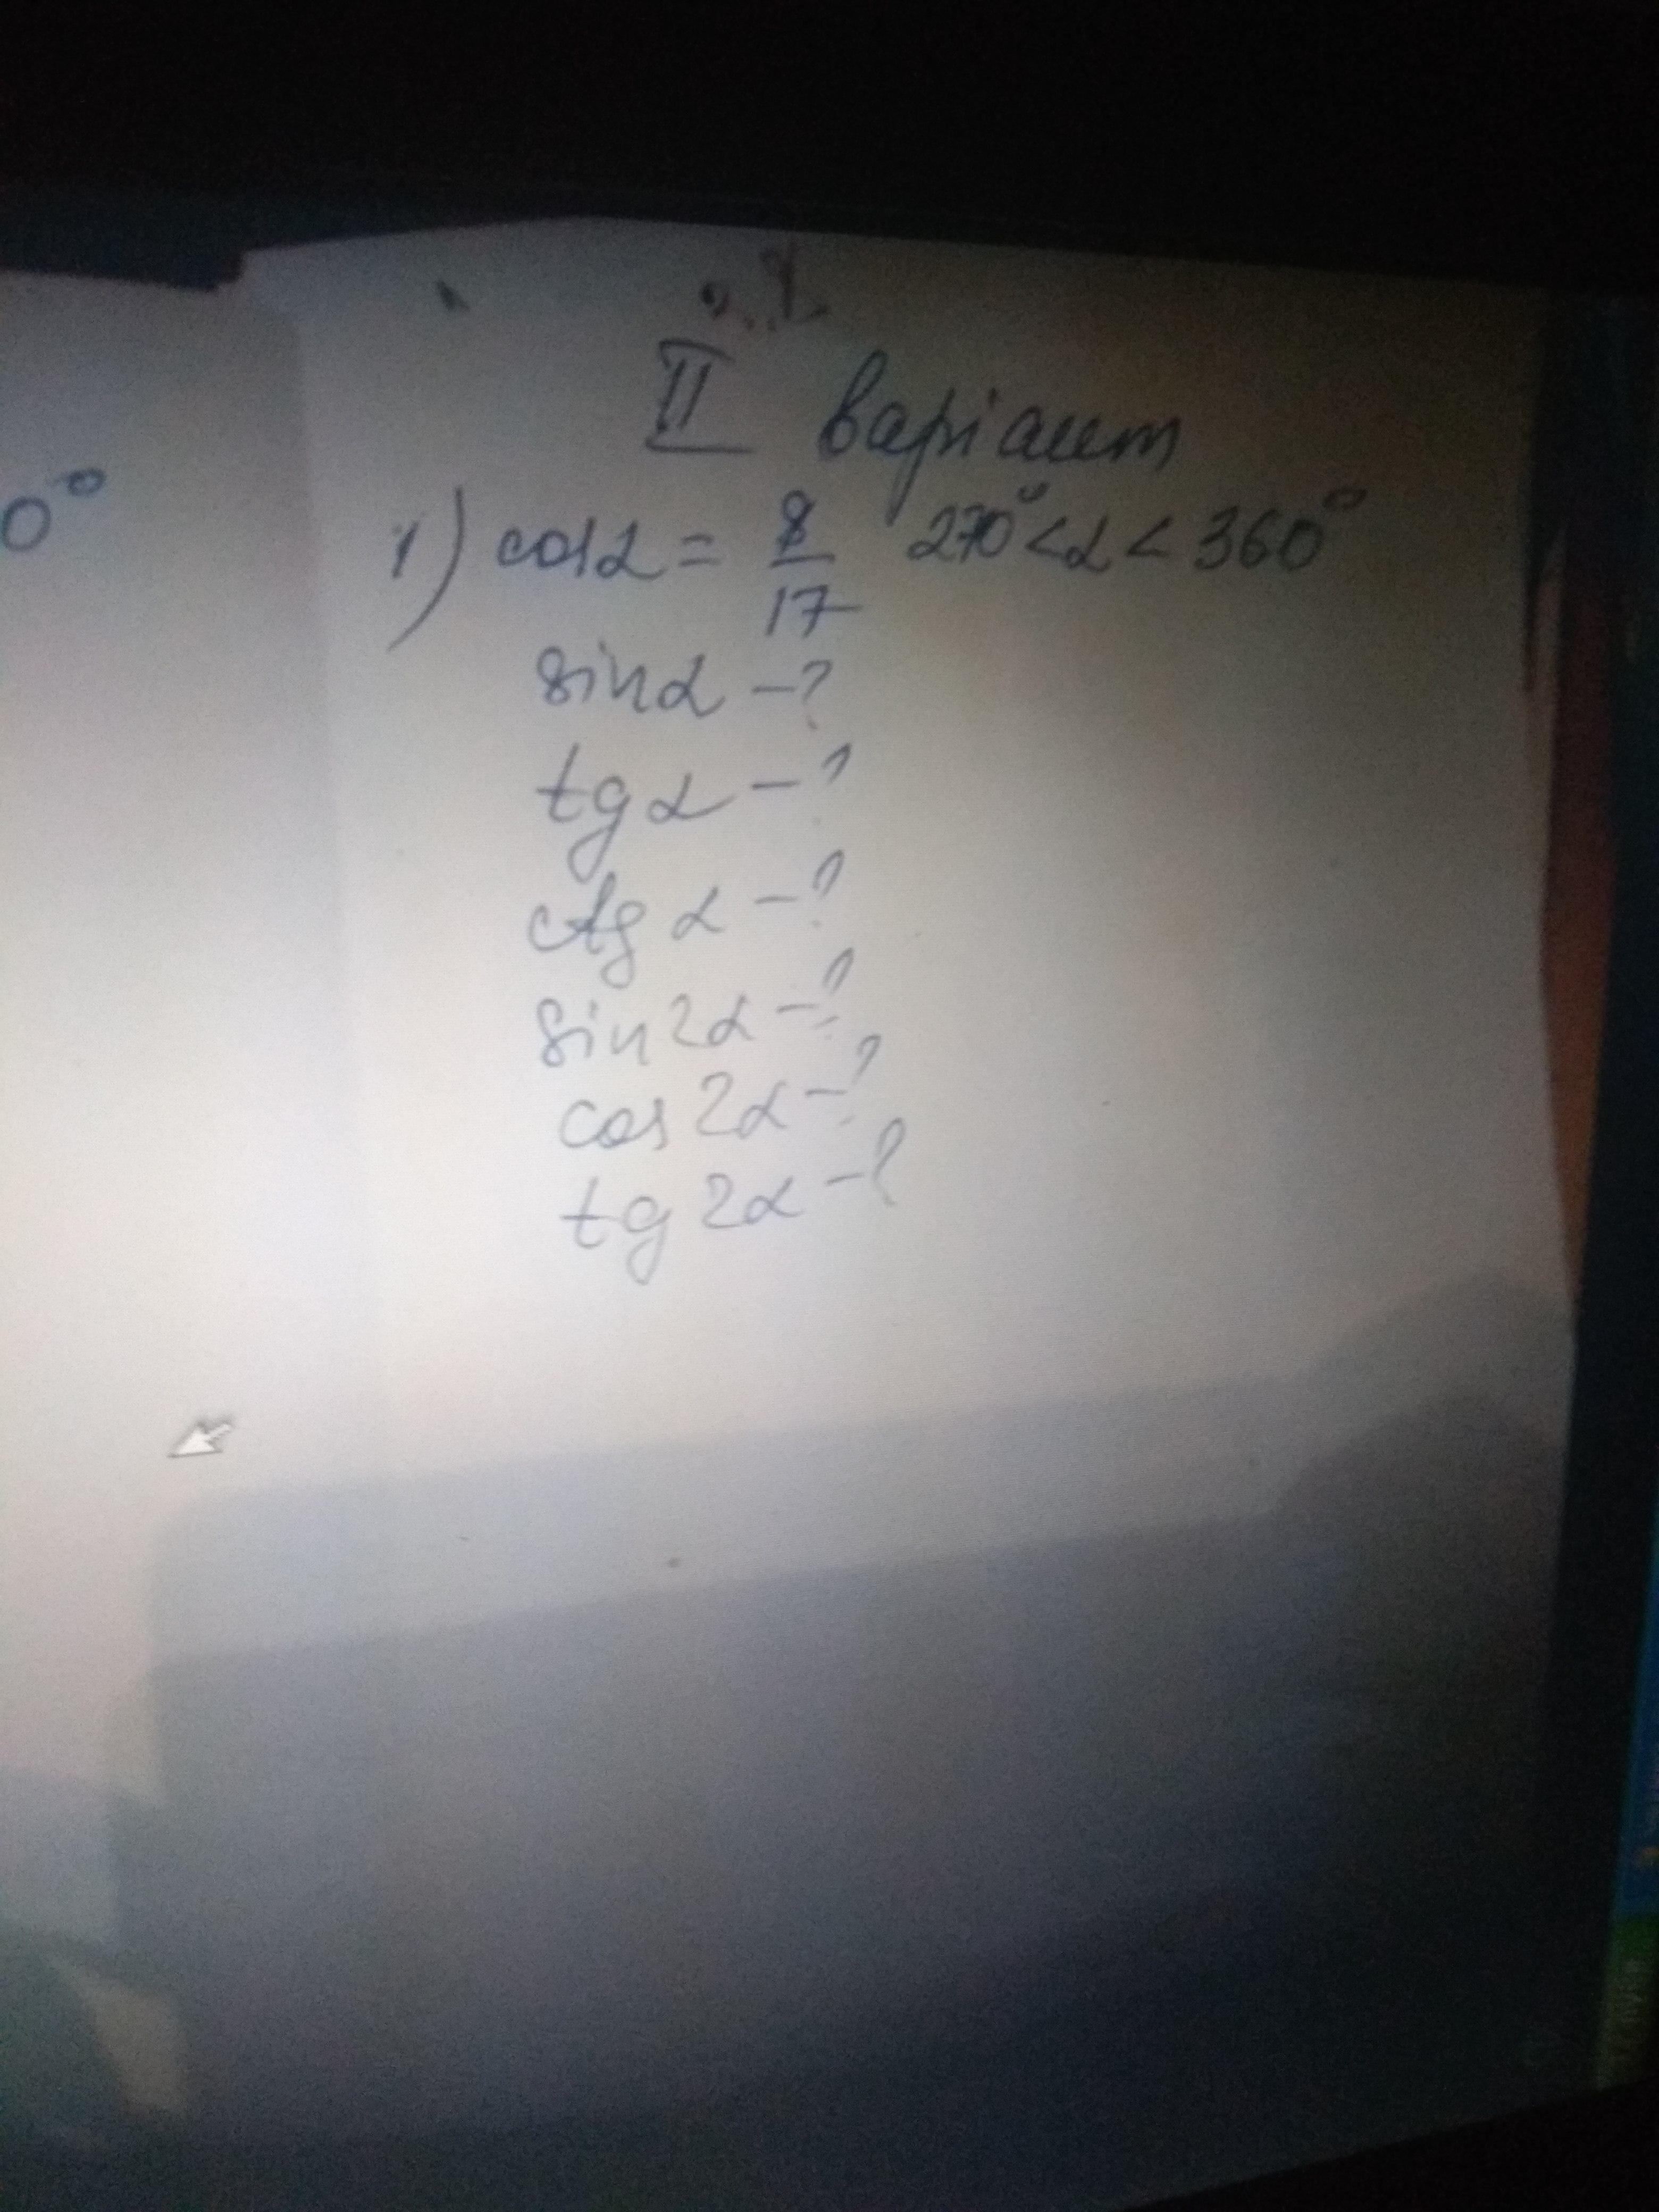 II варіант
0°
1) cosα = 8/17 270° < α < 360°
sinα - ?
tg α - ?
ctg α - ?
sin 2α - ?
cos 2α - ?
tg 2α - ?